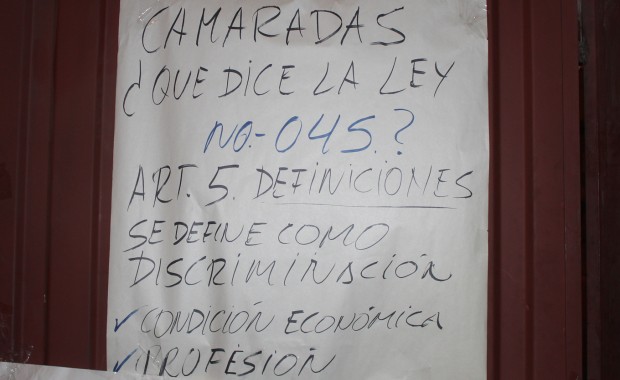 CAMARADAS
¿QUE DICE LA LEY
NO.- 045.?
ART. 5. DEFINICIONES
SE DEFINE COMO
DISCRIMINACIÓN
✓CONDICIÓN ECONÓMICA
✓PROFESIÓN